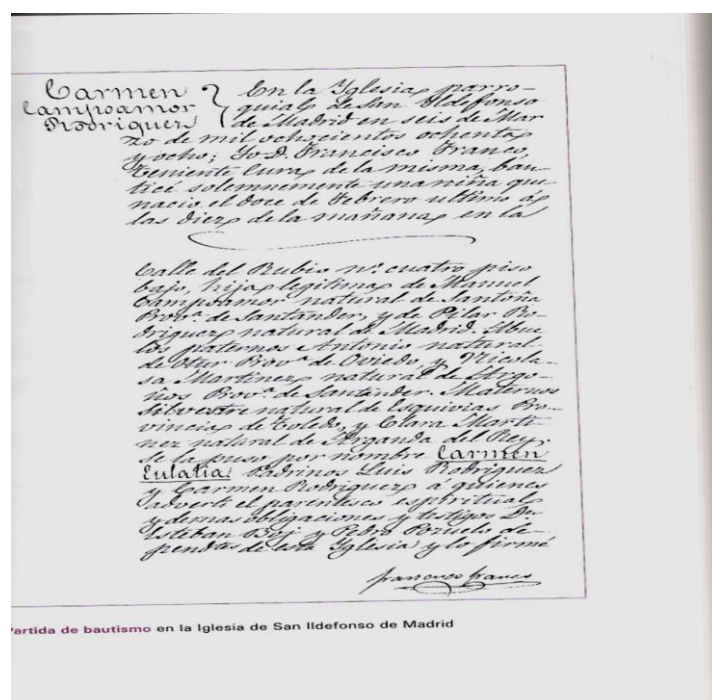 Carmen
Campoamor
Rodriguez
En la Yglesia parro-
quial de San Yldefonso
de Madrid en seis de Mar
zo de mil ochocientos ochenta
y ocho; Yo D. Francisco Franco,
Teniente Cura de la misma, bau
ticé solemnemente una niña que
nacio el doce de Febrero ultimo á
las diez de la mañana en la
Calle del Rubio nº. cuatro piso
bajo, hija legitima de Manuel
Campoamor natural de Santoña
Provª. de Santander, y de Pilar Ro-
driguez natural de Madrid. Abue
los paternos Antonio natural
de Otur Provª de Oviedo, y Nicola-
sa Martinez natural de Argo-
ños Provª. de Santander. Maternos
Silvestre natural de Esquivias Pro-
vincia de Toledo, y Clara Marti-
nez natural de Arganda del Rey;
se la puso por nombre Carmen
Eulalia: Padrinos Luis Rodriguez
y Carmen Rodriguez á quienes
adverti el parentesco espiritual
y demas obligaciones y testigos Dn
Esteban Boj y Pedro Pozuelo de-
pendtes de esta Yglesia y lo firmé
Francisco Franco
Partida de bautismo en la Iglesia de San Ildefonso de Madrid